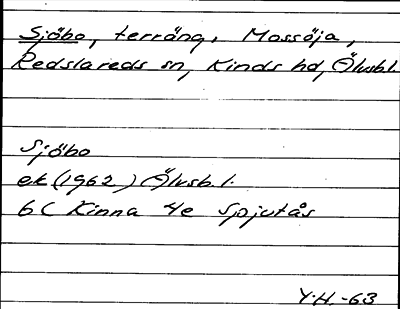 Sjöbo, terräng, Mossöja,
Redslareds sn, Kinds hd, Älvsb.l.
Sjöbo
ek (1962) Älvsb.l.
6C Kinna 4e Spjutås
Y.H.-63